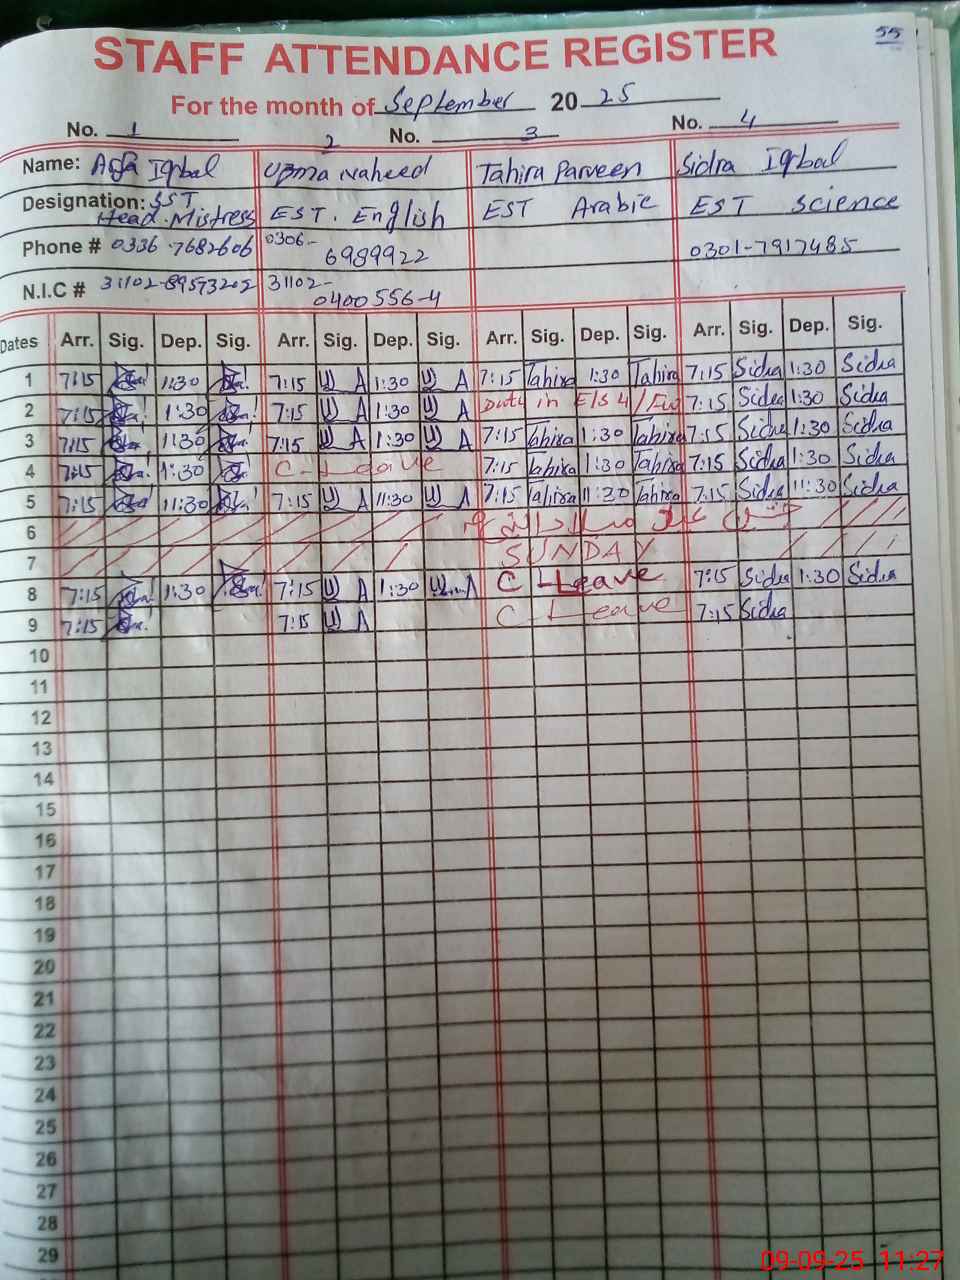 55
STAFF ATTENDANCE REGISTER
For the month of September 2025
No. 1 2 No. 3 No. 4
Name: Iqbal Uzma Naheed Tahira Parveen Sidra Iqbal
Designation: SST Head Mistress EST. English EST Arabic EST Science
Phone # 0336-7682606 0306-6989922 0301-7917485
N.I.C # 31102- 31102-0400556-4
Dates Arr. Sig. Dep. Sig. Arr. Sig. Dep. Sig. Arr. Sig. Dep. Sig. Arr. Sig. Dep. Sig.
1 7:15 1:30 7:15 U A 1:30 U A 7:15 Tahira 1:30 Tahira 7:15 Sidra 1:30 Sidra
2 7:15 1:30 7:15 U A 1:30 U A Duty in 7:15 Sidra 1:30 Sidra
3 7:15 1:30 7:15 U A 1:30 U A 7:15 Tahira 1:30 Tahira 7:15 Sidra 1:30 Sidra
4 7:15 1:30 C-Leave 7:15 Tahira 1:30 Tahira 7:15 Sidra 1:30 Sidra
5 7:15 11:30 7:15 U A 11:30 U A 7:15 Tahira 11:30 Tahira 7:15 Sidra 11:30 Sidra
6 جشن عید میلاد النبی
7 SUNDAY
8 7:15 1:30 7:15 U A 1:30 C-Leave 7:15 Sidra 1:30 Sidra
9 7:15 7:15 U A C Leave 7:15 Sidra
10
11
12
13
14
15
16
17
18
19
20
21
22
23
24
25
26
27
28
29
09-09-25 11:27